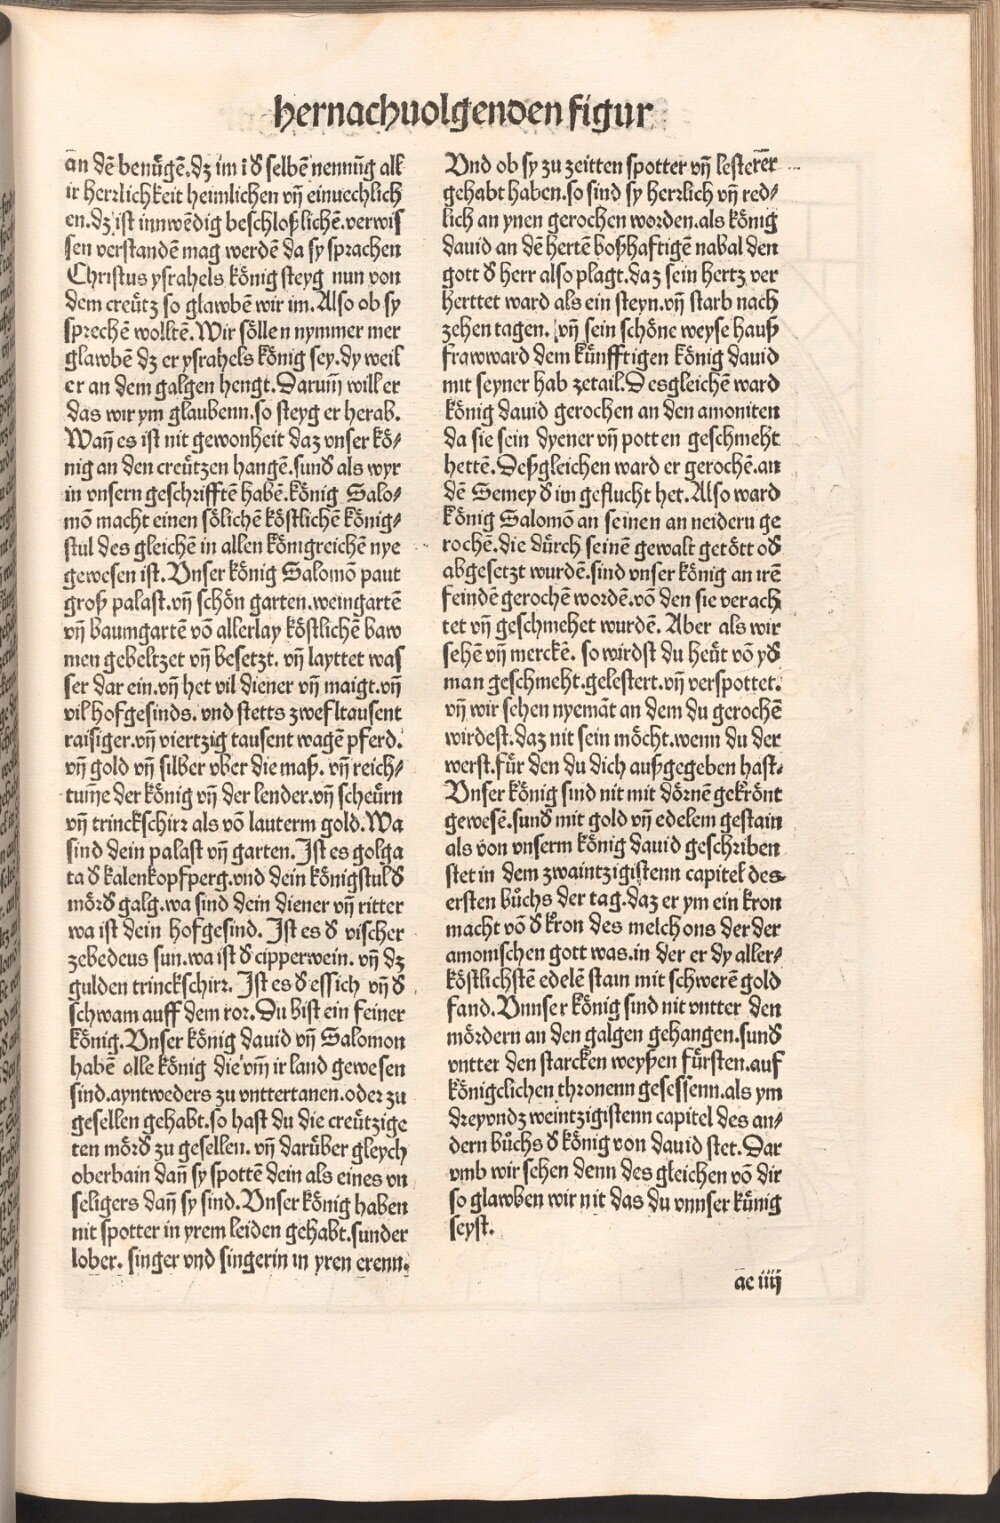 hernachuolgenden figur
an dē benügē.dz im i d̄ selbē nennūg all
ir herrlichkeit heimlichen vn̄ einuechlich
en.dz ist innwēdig beschloßlichē.verwis
sen verstandē mag werdē da sy sprachen
Christus ysrahels könig steyg nun von
dem creütz so glawbē wir im.Also ob sy
sprechē wolltē.Wir söllen nymmer mer
glawbē dz er ysrahels könig sey.dy weil
er an dem galgen hengt.Darum̄ will er
das wir ym glaubenn.so steyg er herab.
Wan̄ es ist nit gewonheit daz vnser kö⸗
nig an den creützen hangē.sund̄ als wyr
in vnsern geschrifftē habē.könig Salo⸗
mō macht einen sölichē köstlichē könig⸗
stul des gleichē in allen königreichē nye
gewesen ist.Vnser könig Salomō paut
groß palast.vn̄ schön garten.weingartē
vn̄ baumgartē vō allerlay köstlichē baw
men gebeltzet vn̄ besetzt. vn̄ layttet was
ser dar ein.vn̄ het vil diener vn̄ maigt.vn̄
vil hofgesinds. vnd stetts zwefltausent
raisiger.vn̄ viertzig tausent wagē pferd.
vn̄ gold vn̄ silber vber die maß. vn̄ reich⸗
tum̄e der könig vn̄ der lender.vn̄ scheürn
vn̄ trinckschirr als vō lauterm gold.Wa
sind dein palast vn̄ garten. Ist es golga
ta d̄ kalenkopfperg.vnd dein königstul d̄
mörd̄ galg.wa sind dein diener vn̄ ritter
wa ist dein hofgesind. Ist es d̄ vischer
zebedeus sun.wa ist d̄ cipperwein. vn̄ dz
gulden trinckschirr. Ist es d̄ essich vn̄ d̄
schwam auff dem ror.Du bist ein feiner
könig.Vnser könig dauid vn̄ Salomon
habē alle könig die vm̄ ir land gewesen
sind.ayntweders zu vnttertanen.oder zu
gesellen gehabt.so hast du die creützige
ten mörd̄ zu gesellen. vn̄ darüber gleych
oberbain dan̄ sy spottē dein als eines vn
seligers dan̄ sy sind.Vnser könig haben
nit spotter in yrem leiden gehabt.sunder
lober. singer vnd singerin in yren erenn.
Vnd ob sy zu zeitten spotter vn̄ lesterer
gehabt haben.so sind sy herrlich vn̄ red⸗
lich an ynen gerochen worden.als könig
dauid an dē hertē boßhaftigē nabal den
gott d̄ herr also plagt.daz sein hertz ver
herttet ward als ein steyn.vn̄ starb nach
zehen tagen. vn̄ sein schöne weyse hauß
frawward dem künfftigen könig dauid
mit seyner hab zetail.Desgleichē ward
könig dauid gerochen an den amoniten
da sie sein dyener vn̄ potten geschmeht
hettē.Deßgleichen ward er gerochē.an
dē Semey d̄ im geflucht het.Also ward
könig Salomō an seinen an neidern ge
rochē.die dürch seinē gewalt getött od̄
abgesetzt wurdē.sind vnser könig an irē
feindē gerochē wordē.vō den sie verach
tet vn̄ geschmehet wurdē. Aber als wir
sehē vn̄ merckē. so wirdst du heüt vō yd̄
man geschmeht.gelestert.vn̄ verspottet.
vn̄ wir sehen nyemāt an dem du gerochē
wirdest.daz nit sein möcht.wenn du der
werst.für den du dich außgegeben hast.
Vnser könig sind nit mit dörnē gekrönt
gewesē.sund̄ mit gold vn̄ edelem gestain
als von vnserm könig dauid geschriben
stet in dem zwaintzigistenn capitel des
ersten büchs der tag.daz er ym ein kron
macht vō d̄ kron des melchons der der
amonischen gott was.in der er dy aller⸗
köstlichstē edelē stain mit schwerē gold
fand. Vnnser könig sind nit vntter den
mördern an den galgen gehangen.sund̄
vntter den starcken weyßen fürsten.auf
königclichen thronenn gesessenn.als ym
dreyvndzweintzigistenn capitel des an⸗
dern büchs d̄ könig von dauid stet.Dar
vmb wir sehen denn des gleichen vō dir
so glawben wir nit das du vnnser künig
seyst.
ae iiij